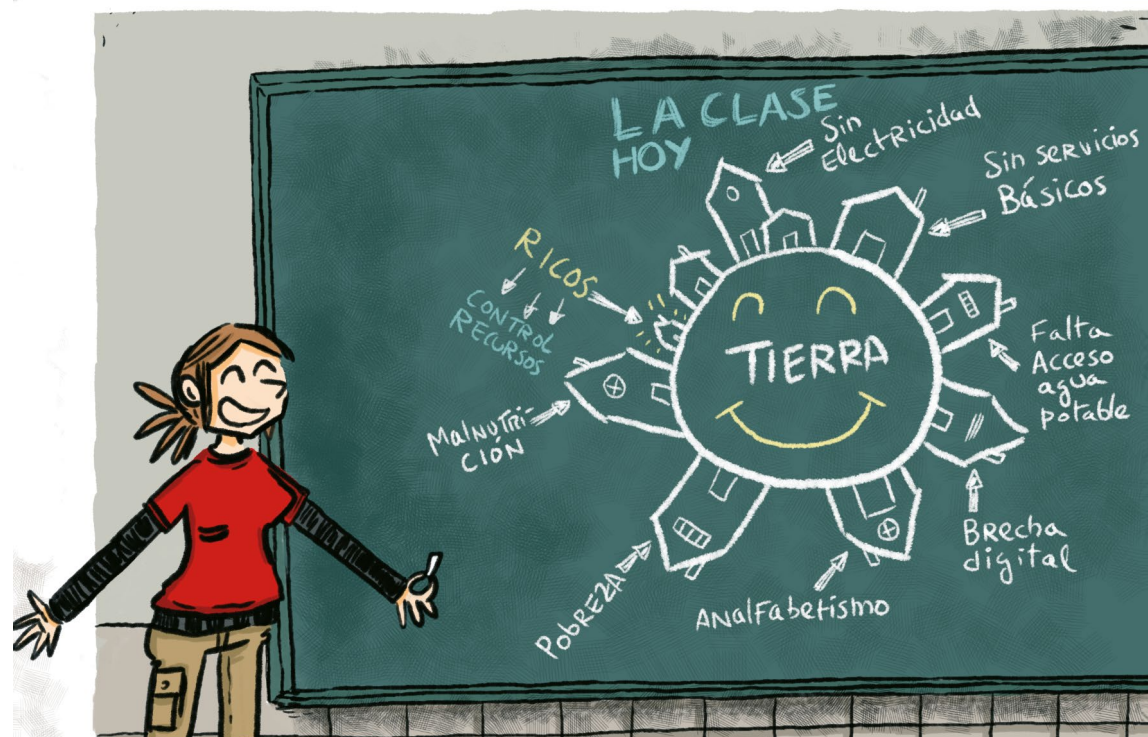 LA CLASE
HOY
Sin
Electricidad
Sin servicios
Básicos
RICOS
CONTROL
RECURSOS
TIERRA
Falta
Acceso
agua
potable
MalNutri-
CIÓN
Brecha
digital
Pobreza
ANalfabetismo